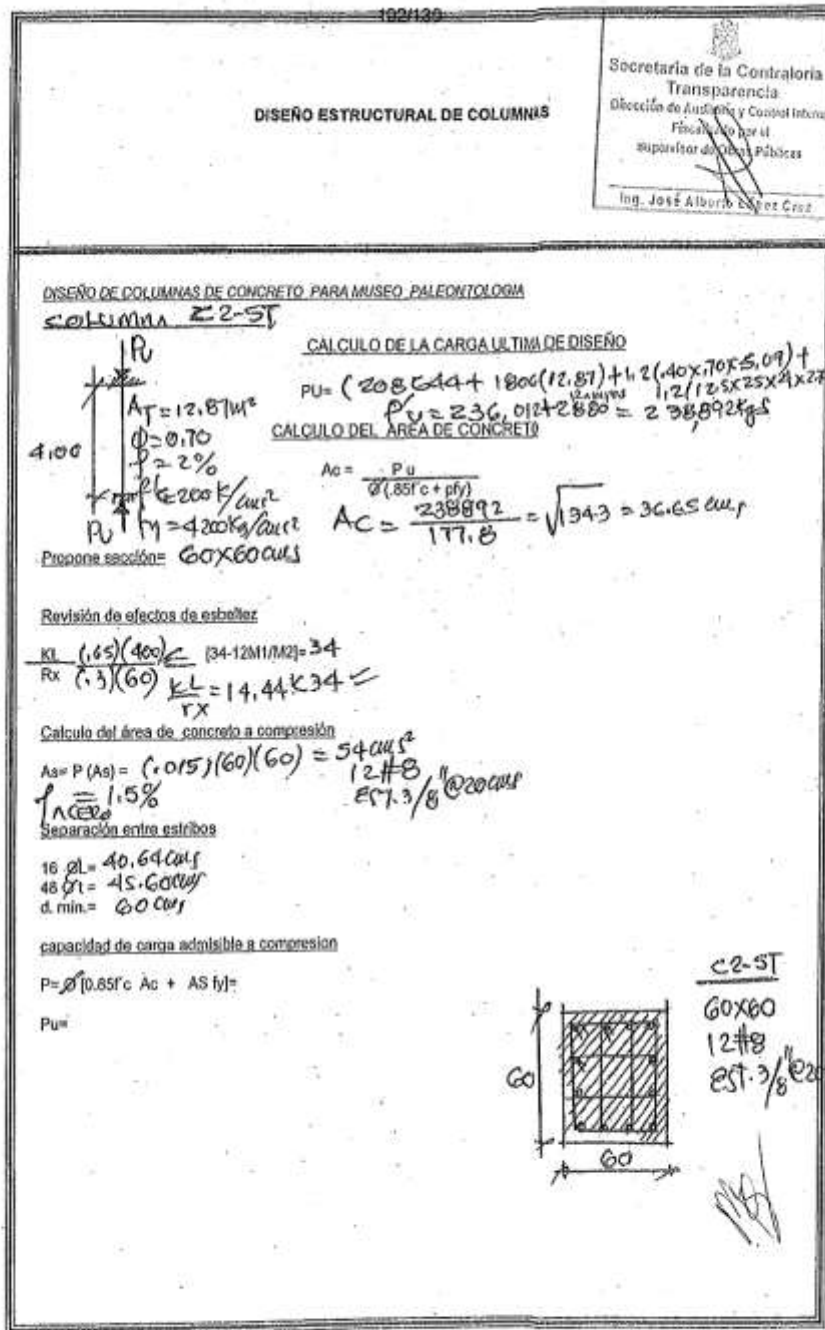 192/139
Secretaria de la Contraloria
Transparencia
Dirección de Auditoría y Control Interno
Fiscalizado por el
supervisor de Obras Públicas
Ing. José Alberto López Cruz
DISEÑO ESTRUCTURAL DE COLUMNAS
DISEÑO DE COLUMNAS DE CONCRETO PARA MUSEO PALEONTOLOGIA
COLUMNA C2-5T
PU
4.00
AT=12.87m²
Ø=0.70
ρ=2%
f'c=200K/cms²
PU
fy=4200Kg/cms²
CÁLCULO DE LA CARGA ULTIMA DE DISEÑO
PU= (208644+1806(12.87)+1.2(.40x.70x5.09)+
1.2(12.5x25x4x2
PU=236,012+2880= 238,892Kgs
CALCULO DEL ÁREA DE CONCRETO
Ac = Pu
Ø(.85f'c + pfy)
AC= 238892 = √1343 = 36.65 cms
177.8
Propone sección= 60X60cms
Revisión de efectos de esbeltez
KL (.65)(400) < [34-12M1/M2]=34
Rx (.3)(60)
KL = 14.44<34
rx
Calculo del área de concreto a compresión
As= P (As) = (.015)(60)(60) = 54cms²
12#8
ρACERO=1.5%
EST.3/8"@20cms
Separación entre estribos
16 ØL= 40.64cms
48 Øt= 45.60cms
d. min.= 60cms
capacidad de carga admisible a compresion
P=Ø[0.85f'c Ac + AS fy]=
Pu=
C2-5T
60X60
12#8
EST.3/8"@20
60
60